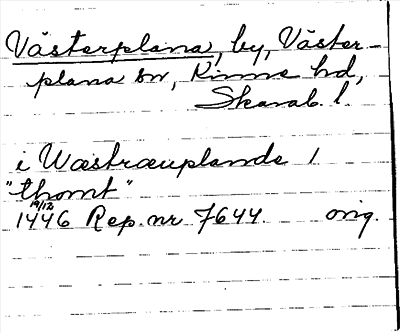 Västerplana, by, Väster-
plana sn, Kinne hd,
Skarab. l.
i Wæstræuplande 1
"thomt"
19/12
1446 Rep. nr 7644 orig.